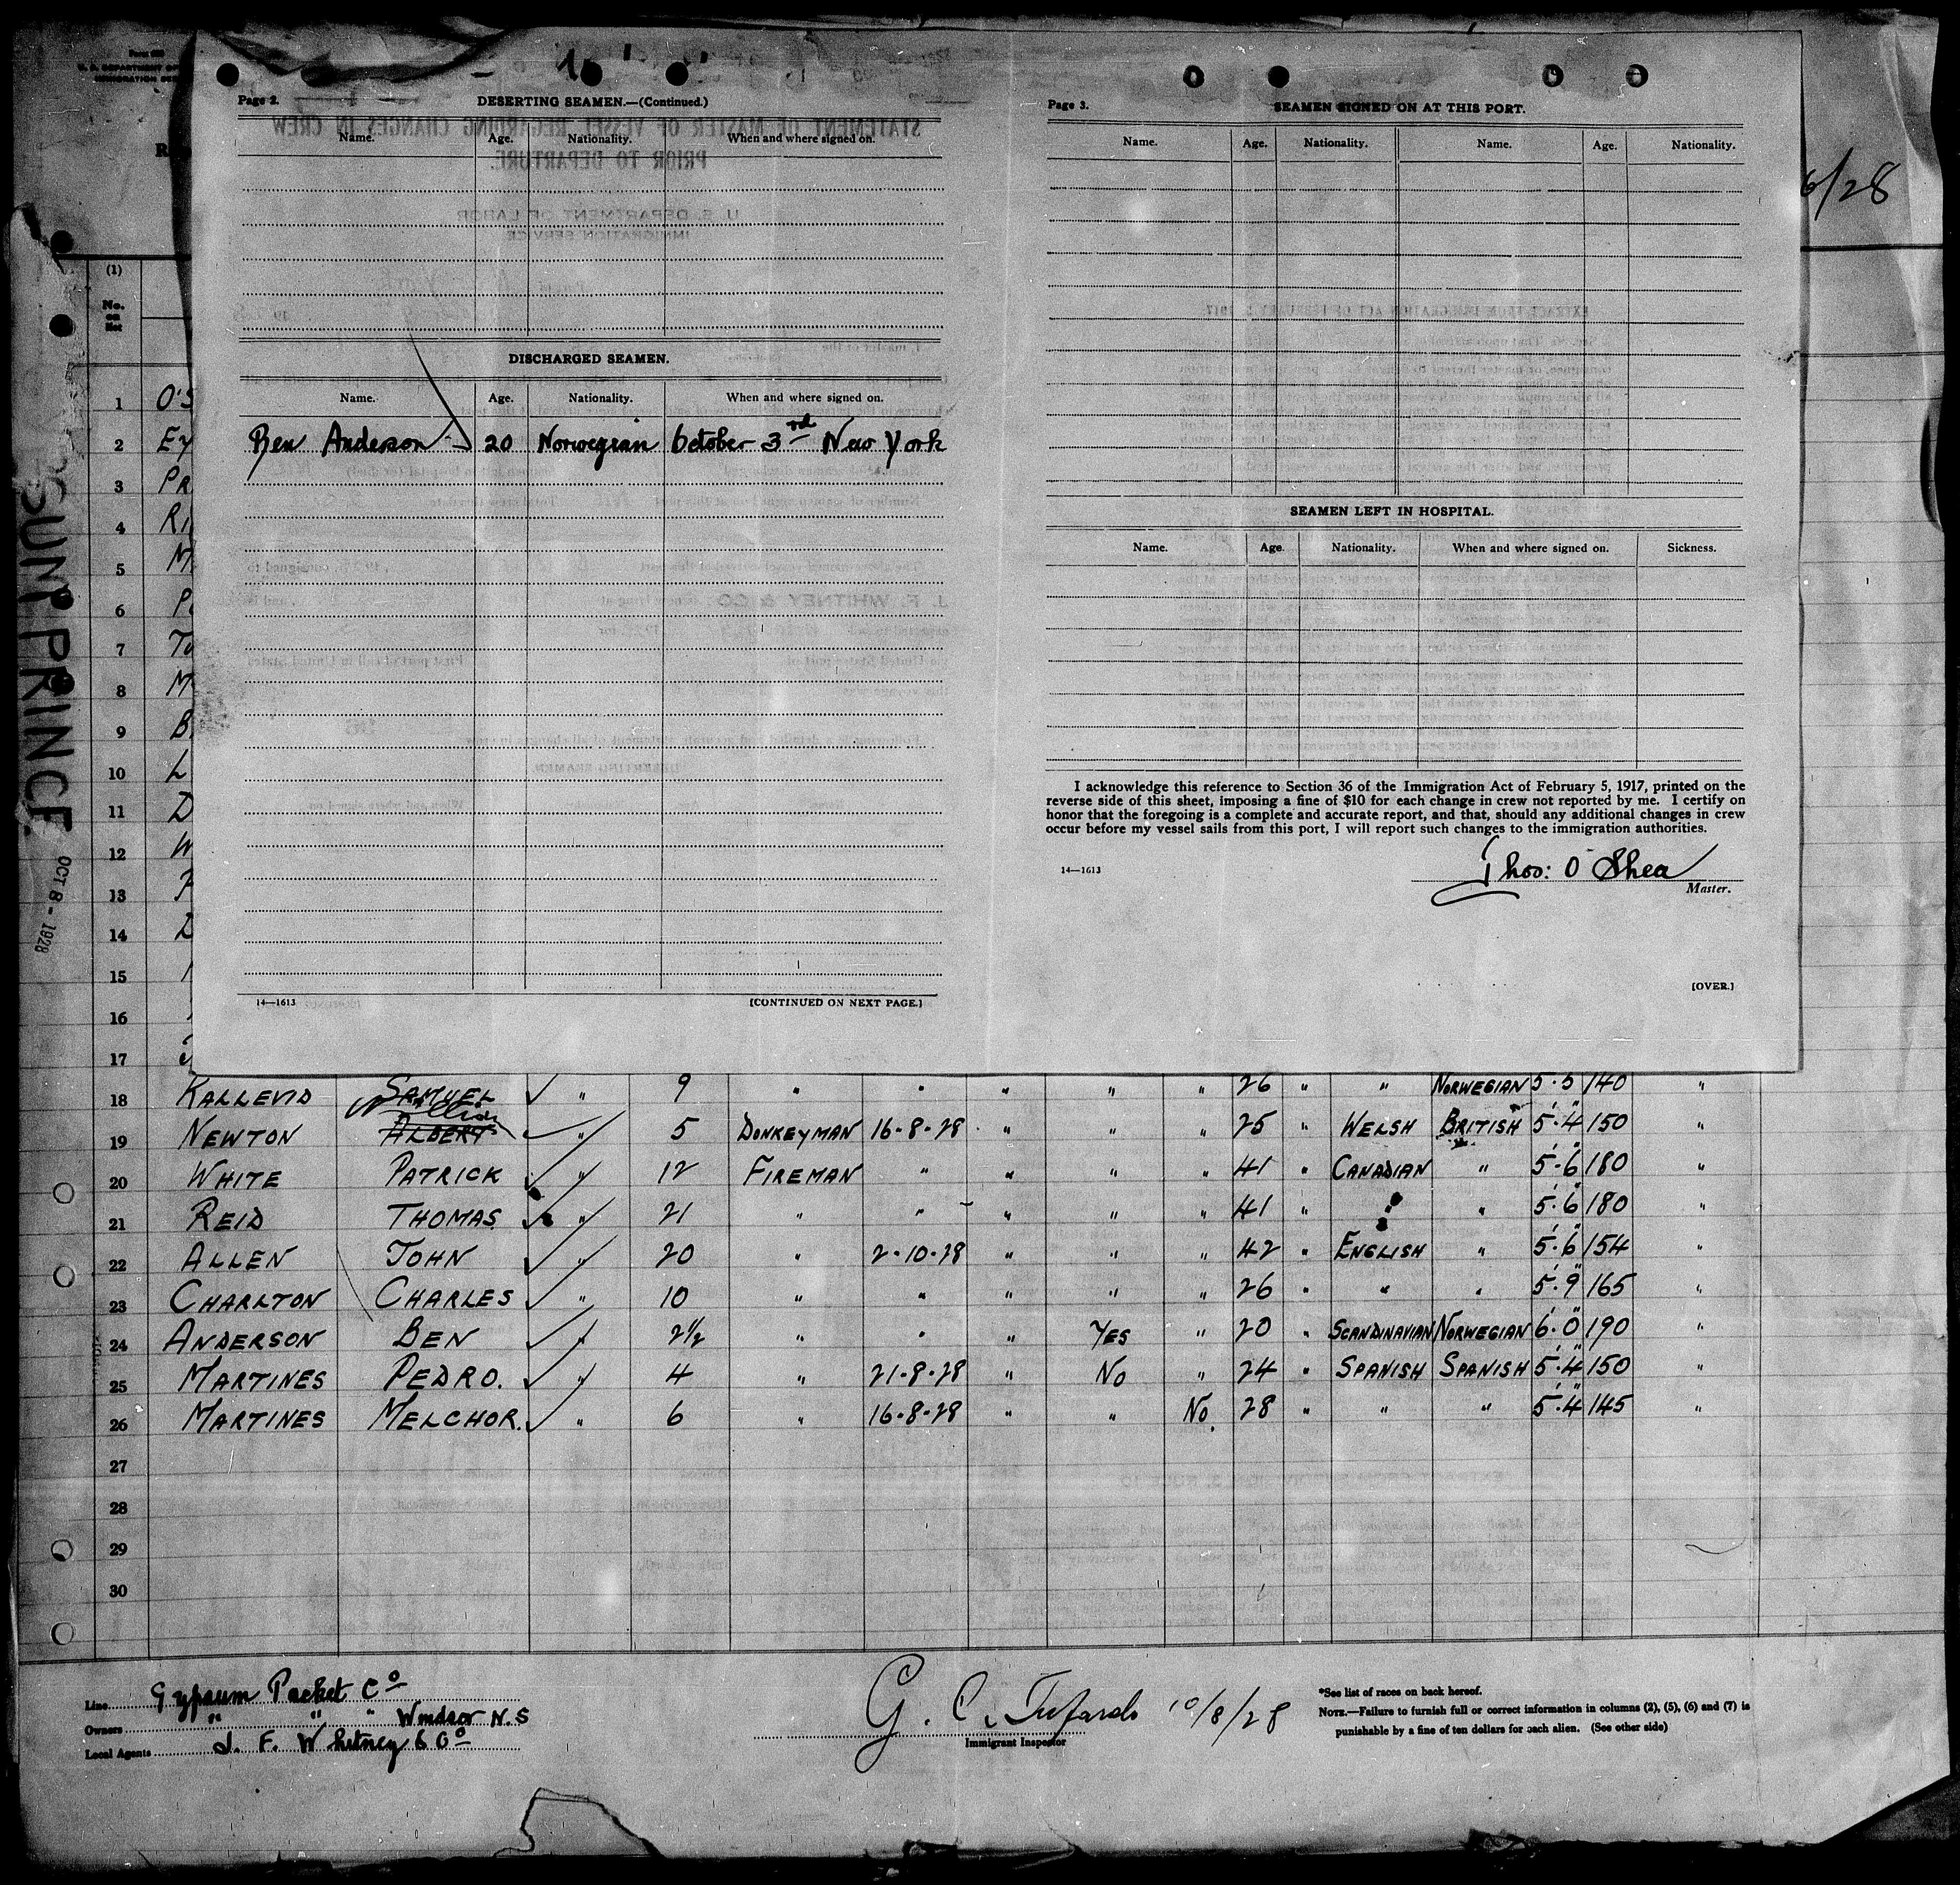 Page 2.
DESERTING SEAMEN.—(Continued.)
Name. Age. Nationality. When and where signed on.
DISCHARGED SEAMEN.
Name. Age. Nationality. When and where signed on.
Ben Anderson 20 Norwegian October 3rd New York
14—1613 [CONTINUED ON NEXT PAGE.]
Page 3.
SEAMEN SIGNED ON AT THIS PORT.
Name. Age. Nationality. Name. Age. Nationality.
SEAMEN LEFT IN HOSPITAL.
Name. Age. Nationality. When and where signed on. Sickness.
I acknowledge this reference to Section 36 of the Immigration Act of February 5, 1917, printed on the
reverse side of this sheet, imposing a fine of $10 for each change in crew not reported by me. I certify on
honor that the foregoing is a complete and accurate report, and that, should any additional changes in crew
occur before my vessel sails from this port, I will report such changes to the immigration authorities.
Thos: O'Shea
14—1613 Master.
[OVER.]
6/28
SUM PRINCE
OCT 8 - 1928
(1)
No.
on
list
1 O'S
2 EY
3 PR
4 RI
5 M
6 P
7 To
8 M
9 B
10 L
11 D
12 W
13
14 D
15
16
17
18 KALLEVID SAMUEL ✓ " 9 " " " " " 26 " " NORWEGIAN 5'.5" 140 "
William
19 NEWTON ALBERT ✓ " 5 DONKEYMAN 16-8-28 " " " 25 " WELSH BRITISH 5'.4" 150 "
20 WHITE PATRICK ✓ " 12 FIREMAN " " " " 41 " CANADIAN " 5'.6" 180 "
21 REID THOMAS ✓ " 21 " " " " " 41 " " " 5'.6" 180 "
22 ALLEN JOHN ✓ " 20 " 2-10-28 " " " 42 " ENGLISH " 5'.6" 154 "
23 CHARLTON CHARLES ✓ " 10 " " " " " 26 " " " 5'.9" 165 "
24 ANDERSON BEN ✓ " 2½ " " " YES " 20 " SCANDINAVIAN NORWEGIAN 6'.0" 190 "
25 MARTINES PEDRO. ✓ " 4 " 21-8-28 " NO " 24 " SPANISH SPANISH 5'.4" 150 "
26 MARTINES MELCHOR. ✓ " 6 " 16-8-28 " " NO. 28 " " " 5'.4" 145 "
27
28
29
30
Line Gypsum Packet Co
Owners " " " Windsor N.S
Local Agents J. F. Whitney & Co
G. C. 10/8/28
Immigrant Inspector
*See list of races on back hereof.
NOTE.—Failure to furnish full or correct information in columns (2), (5), (6) and (7) is
punishable by a fine of ten dollars for each alien. (See other side)